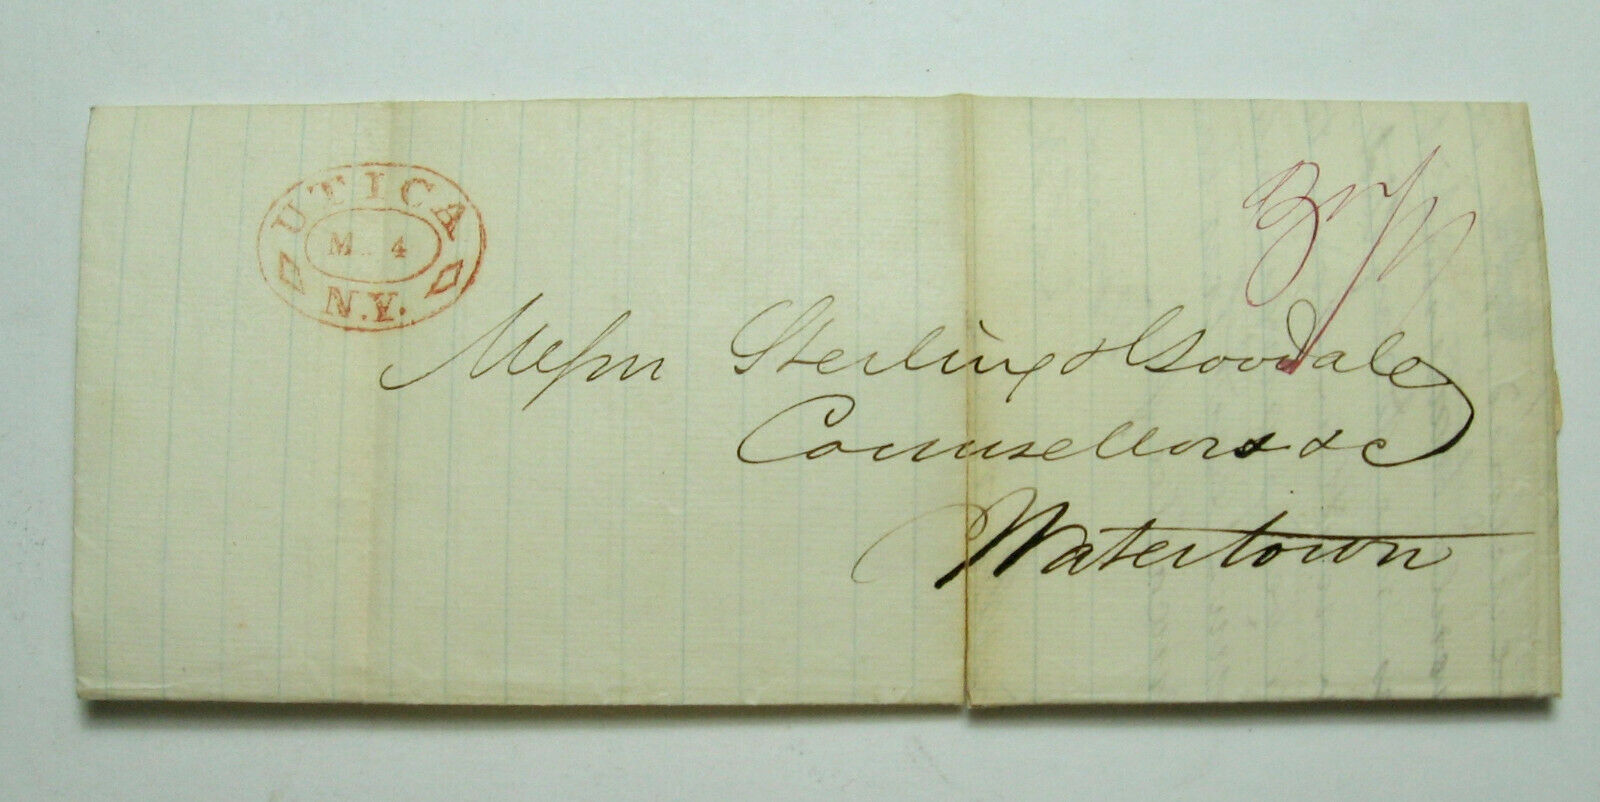 UTICA
M 4
N.Y.
Messrs Sterling & Goodale
Counsellors &c
Watertown